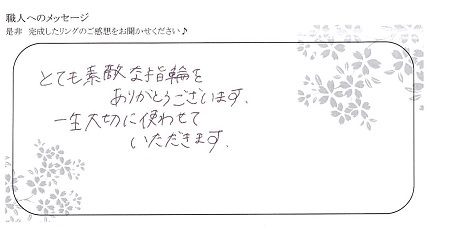 職人へのメッセージ
是非 完成したリングのご感想をお聞かせください♪
とても素敵な指輪を
ありがとうございます.
一生大切に使わせて
いただきます.